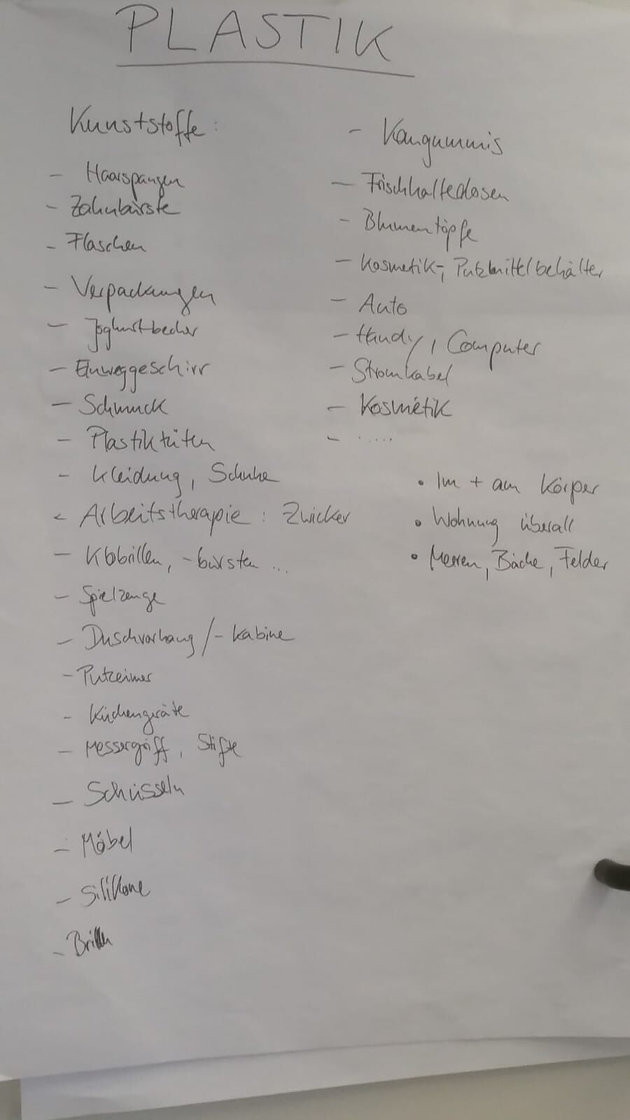 PLASTIK
Kunststoffe:
- Haarspangen
- Zahnbürste
- Flaschen
- Verpackungen
- Joghurtbecher
- Einweggeschirr
- Schmuck
- Plastiktüten
- Kleidung, Schuhe
- Arbeitstherapie: Zwicker
- Klobrillen, -bürsten ...
- Spielzeuge
- Duschvorhang/-kabine
- Putzeimer
- Küchengeräte
- Messergriff, Stifte
- Schüsseln
- Möbel
- Silikone
- Brillen
- Kaugummis
- Frischhaltedosen
- Blumentöpfe
- Kosmetik-, Putzmittelbehälter
- Auto
- Handy, Computer
- Stromkabel
- Kosmetik
- .....
• Im + am Körper
• Wohnung überall
• Meeren, Bäche, Felder